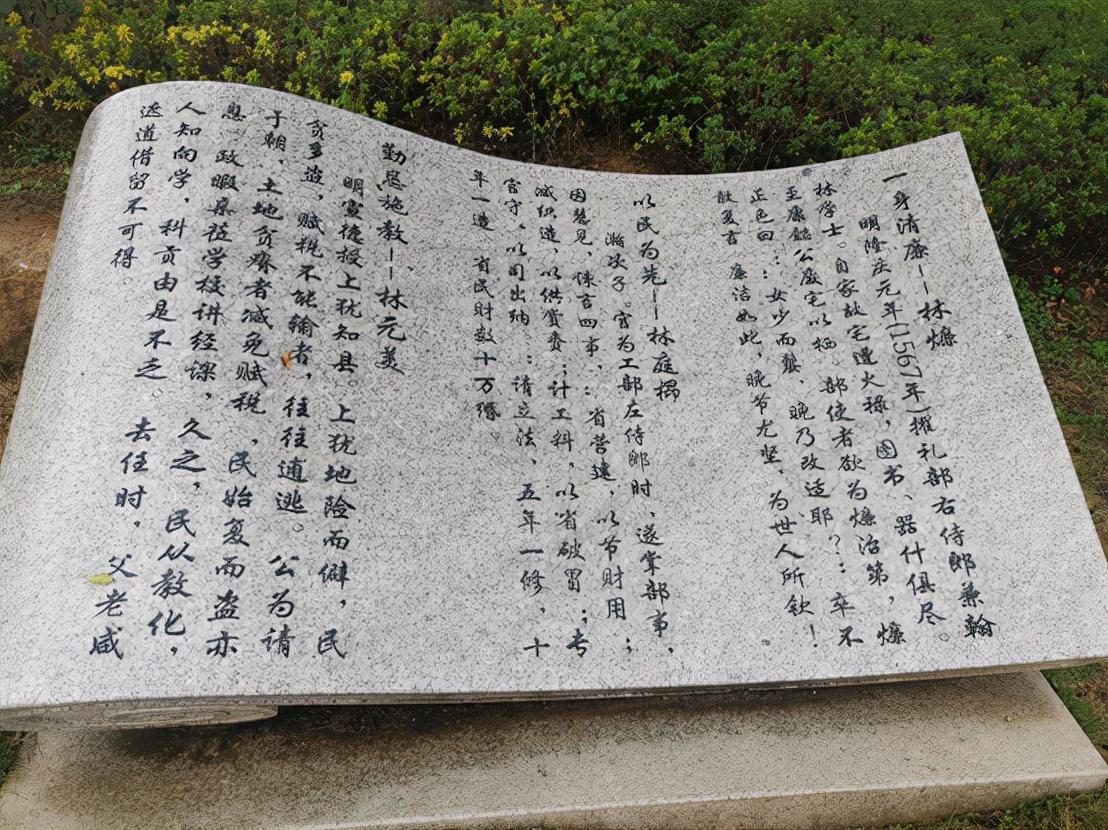 一身清廉——林燫
明隆庆元年(1567年)擢礼部右侍郎兼翰
林学士。自家故宅遭火禄，图书、器什俱尽。
至康懿公废宅以栖。部使者欲为燫治第，燫
正色曰：：女少而嫠、晚乃改适耶？：卒不
敢复言 廉洁如此，晚节尤坚，为世人所钦！
以民为先——林庭㭿
瀚次子。官为工部左侍郎时，遂掌部事，
因慧见，陈言四事，：省营建，以节财用；
减织造、以供赏赉；计工料，以省破冒；专
官守，以司出纳。：请立法、五年一修，十
年一造 省民财数十万缗
勤恩施教——林元美
明宣德授上犹知县。上犹地险而僻，民
贫多盗，赋税不能输者，往往逋逃。公为请
于朝，土地贫瘠者减免赋税，民始复而盗亦
息。政暇亲莅学校讲经课，久之，民从教化，
人知向学，科贡由是不乏。去任时，父老咸
遮道借留不可得。